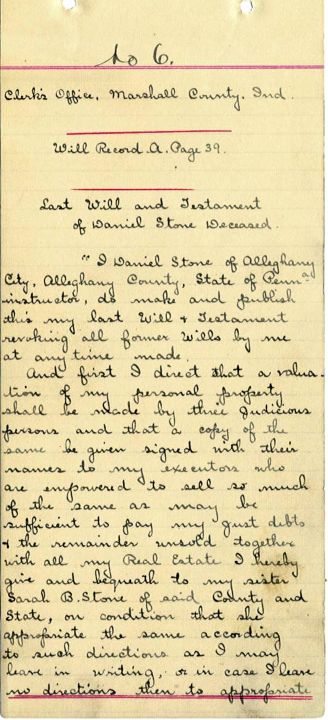 No 6.
Clerk's Office, Marshall County, Ind.
Will Record A. Page 39.
Last Will and Testament
of Daniel Stone Deceased.
"I Daniel Stone of Alleghany
City, Alleghany County, State of Penn^a
instructor, do make and publish
this my last Will & Testament
revoking all former Wills by me
at any time made.
And first I direct that a valua-
tion of my personal property
shall be made by three Judicious
persons and that a copy of the
same be given signed with their
names to my executors who
are empowered to sell so much
of the same as may be
sufficient to pay my just debts
& the remainder unsold together
with all my Real Estate I hereby
give and bequath to my sister
Sarah B. Stone of said County and
State, on condition that she
appropriate the same according
to such directions as I may
leave in writing, or in case I leave
no directions then to appropriate